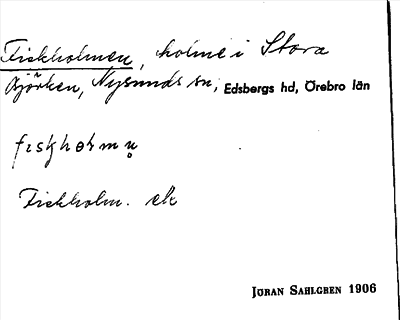 Fiskholmen, holme i Stora
Björken, Nysunds sn, Edsbergs hd, Örebro län
fiskholmn̥
Fiskholm. ek
JÖRAN SAHLGREN 1906